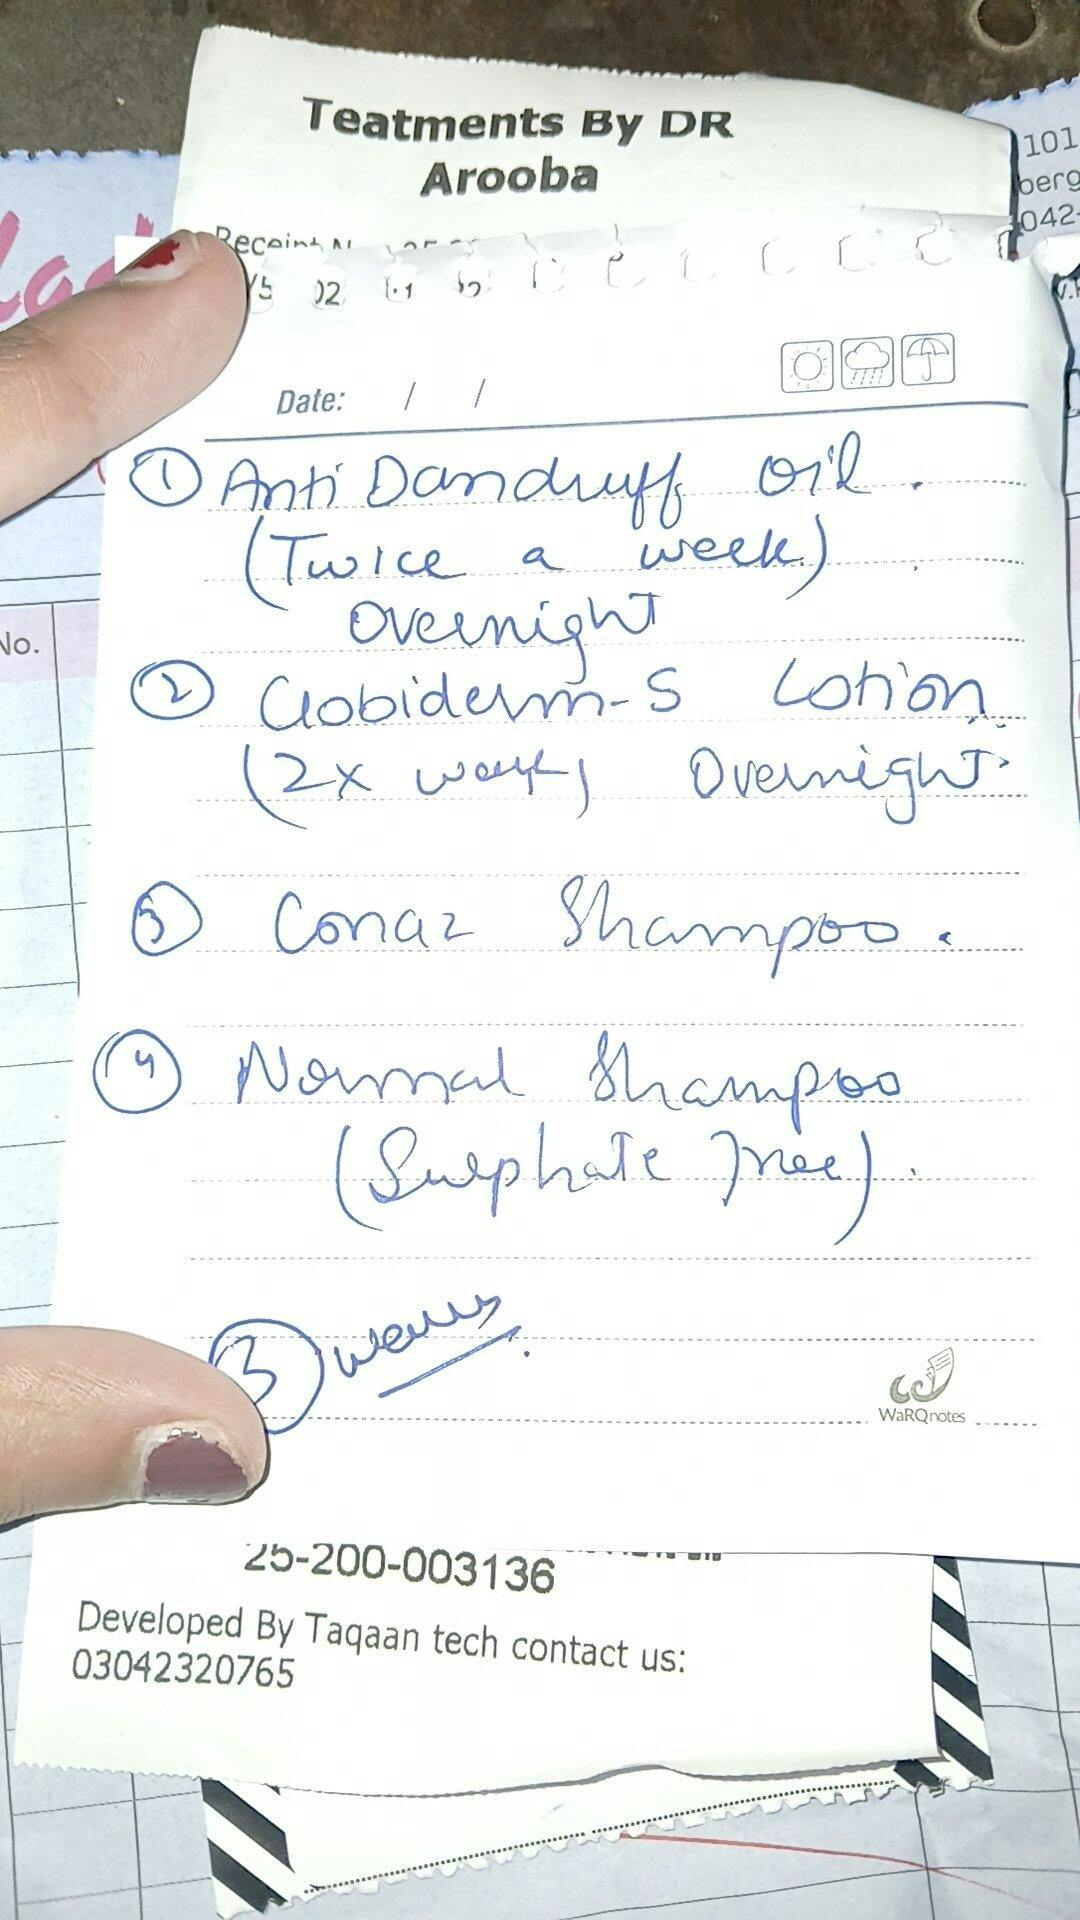 Teatments By DR
Arooba
101
042-
Date: / /
① Anti Dandruff oil.
(Twice a week)
Overnight
② Clobiderm-S Lotion
(2x week) Overnight
③ Conaz Shampoo.
④ Normal Shampoo
(Sulphate free).
③ weeks
WaRQnotes
No.
25-200-003136
Developed By Taqaan tech contact us:
03042320765